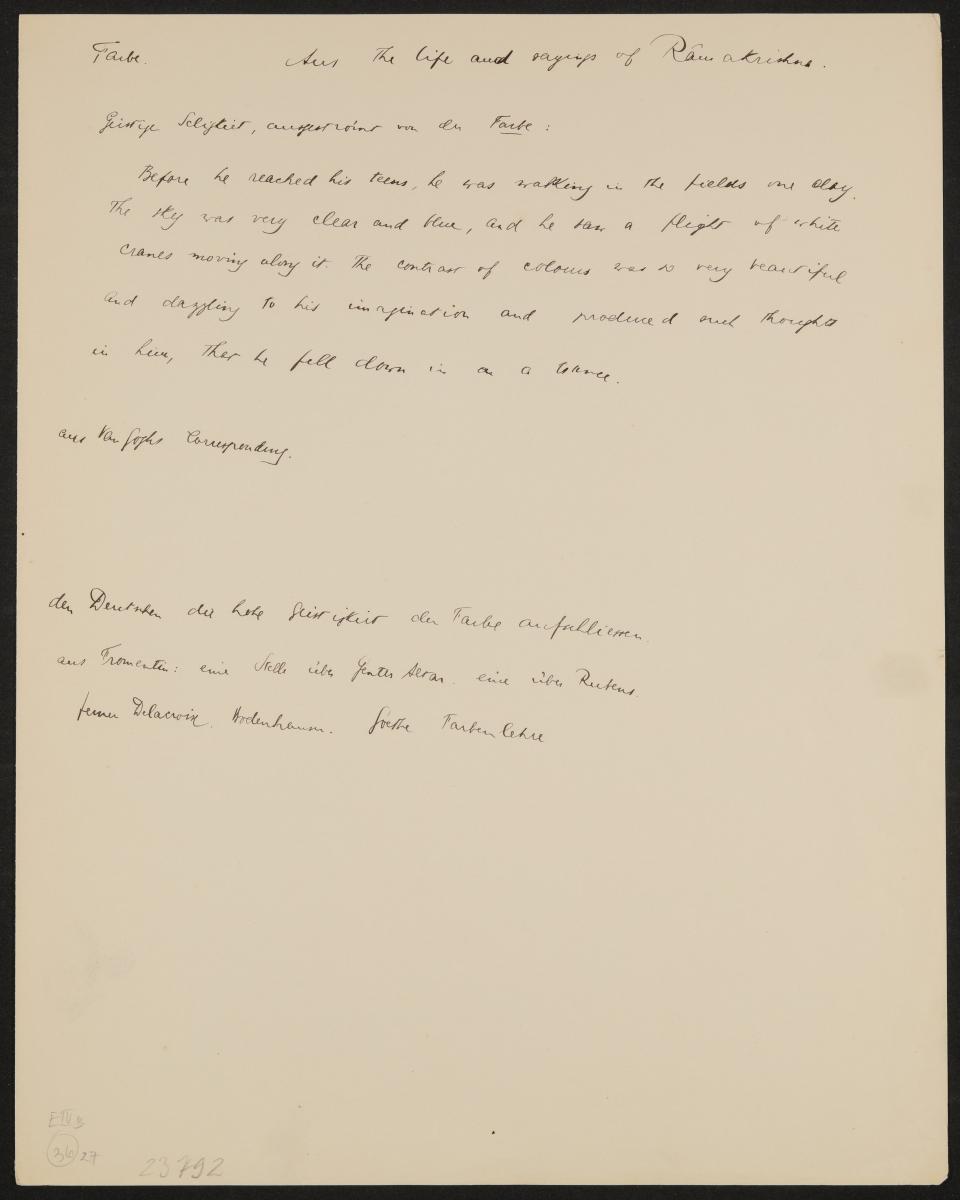 Farbe. Aus the life and sayings of Râmakrishna.
Geistige Seligkeit, ausgeströmt von der Farbe:
Before he reached his teens, he was walking in the fields one day.
The sky was very clear and blue, and he saw a flight of white
cranes moving along it. The contrast of colours was so very beautiful
and dazzling to his imagination and produced such thoughts
in him, that he fell down in a trance.
aus Van Goghs Corresponding.
den Deutschen die hohe Geistigkeit der Farbe aufschliessen.
aus Fromentin: eine Stelle über Genter Altar. eine über Rubens.
ferner Delacroix. Goethe Farbenlehre
E IV B
36 27
23792